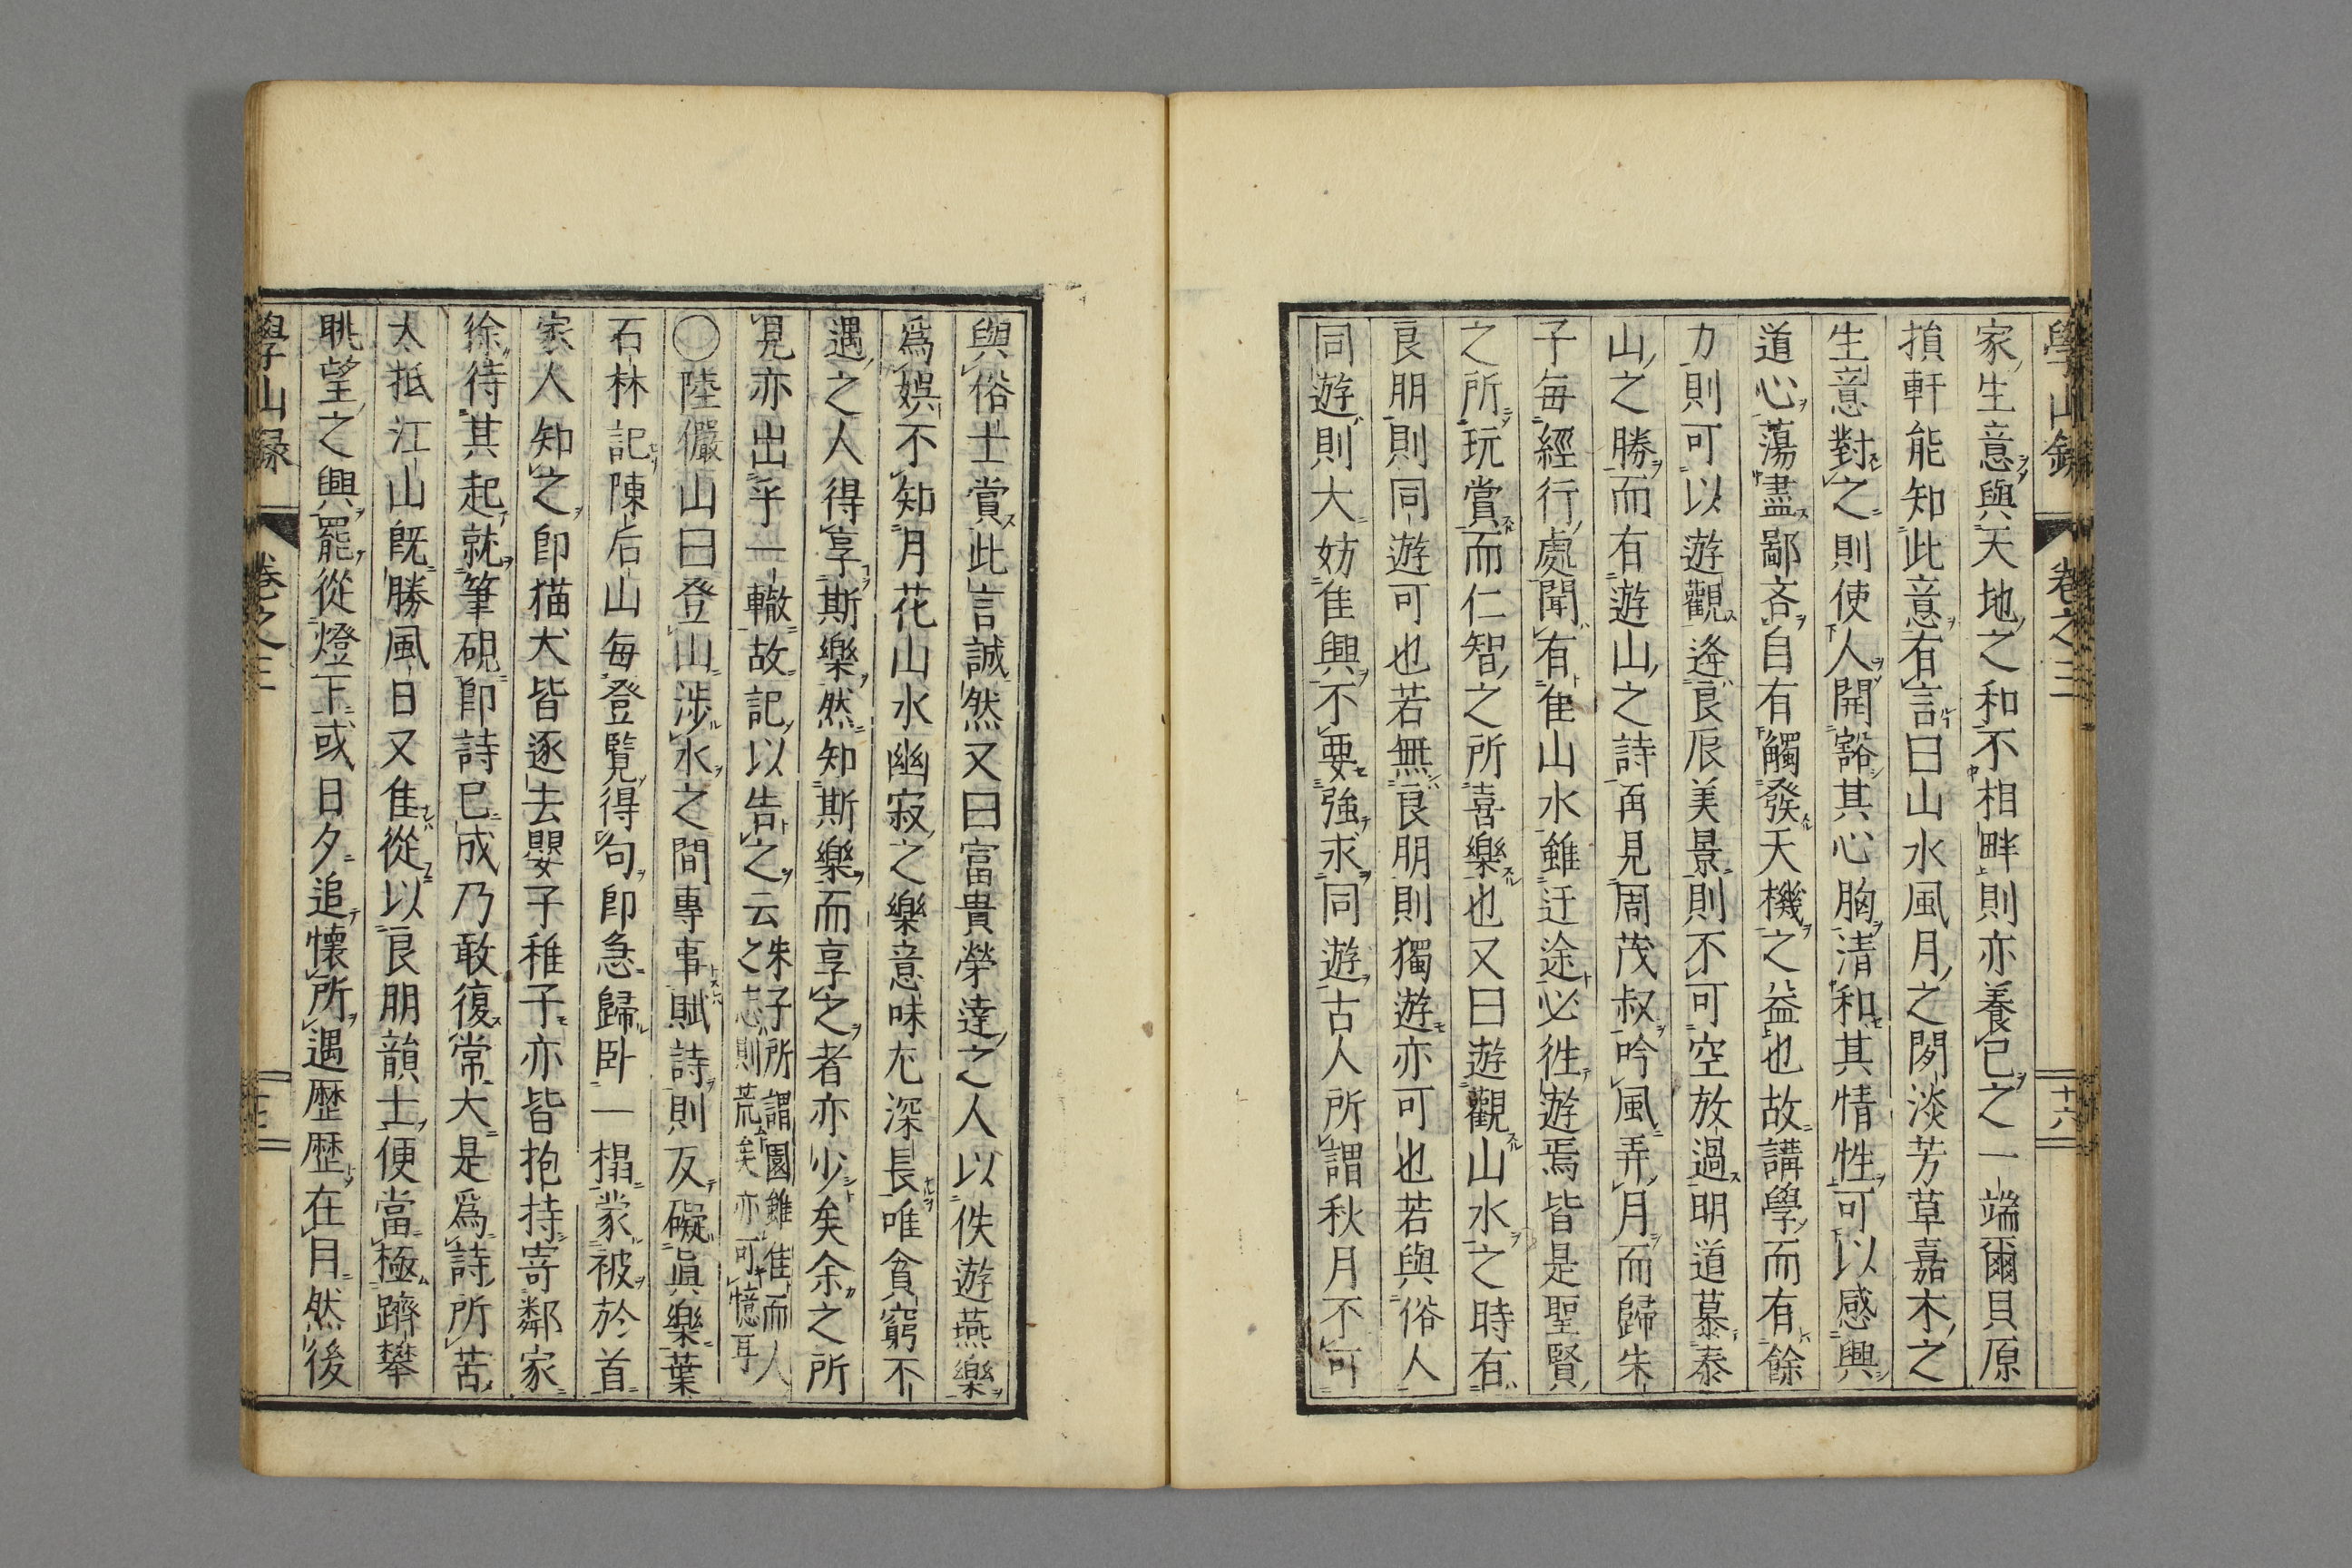 學山錄 卷之三 十六
家生意與天地之和不相畔則亦養己之一端爾貝原
損軒能知此意有言曰山水風月之閒淡芳草嘉木之
生意對之則使人開豁其心胸清和其情性可以感興
道心蕩盡鄙吝自有觸發天機之益也故講學而有餘
力則可以遊觀逢良辰美景則不可空放過明道慕泰
山之勝而有遊山之詩再見周茂叔吟風弄月而歸朱
子每經行處聞有佳山水雖迂途必徃遊焉皆是聖賢
之所玩賞而仁智之所喜樂也又曰遊觀山水之時有
良朋則同遊可也若無良朋則獨遊亦可也若與俗人
同遊則大妨佳興不要強求同遊古人所謂秋月不可
與俗士賞此言誠然又曰富貴榮達之人以佚遊燕樂
爲娯不知月花山水幽寂之樂意味尤深長唯貧窮不
遇之人得享斯樂然知斯樂而享之者亦少矣余之所
見亦出乎一轍故記以告之云朱子所謂園雖佳而人之志則荒矣亦可憶耳
〇陸儼山曰登山涉水之間專事賦詩則反礙眞樂葉
石林記陳后山每登覽得句即急歸臥一榻蒙被於首
家人知之即猫犬皆逐去嬰子稚子亦皆抱持寄鄰家
徐待其起就筆硯即詩已成乃敢復常大是爲詩所苦
大抵江山旣勝風日又佳從以良朋韻士便當極躋攀
眺望之興罷從燈下或日夕追懷所遇歴歴在目然後
學山錄 卷之三 十七